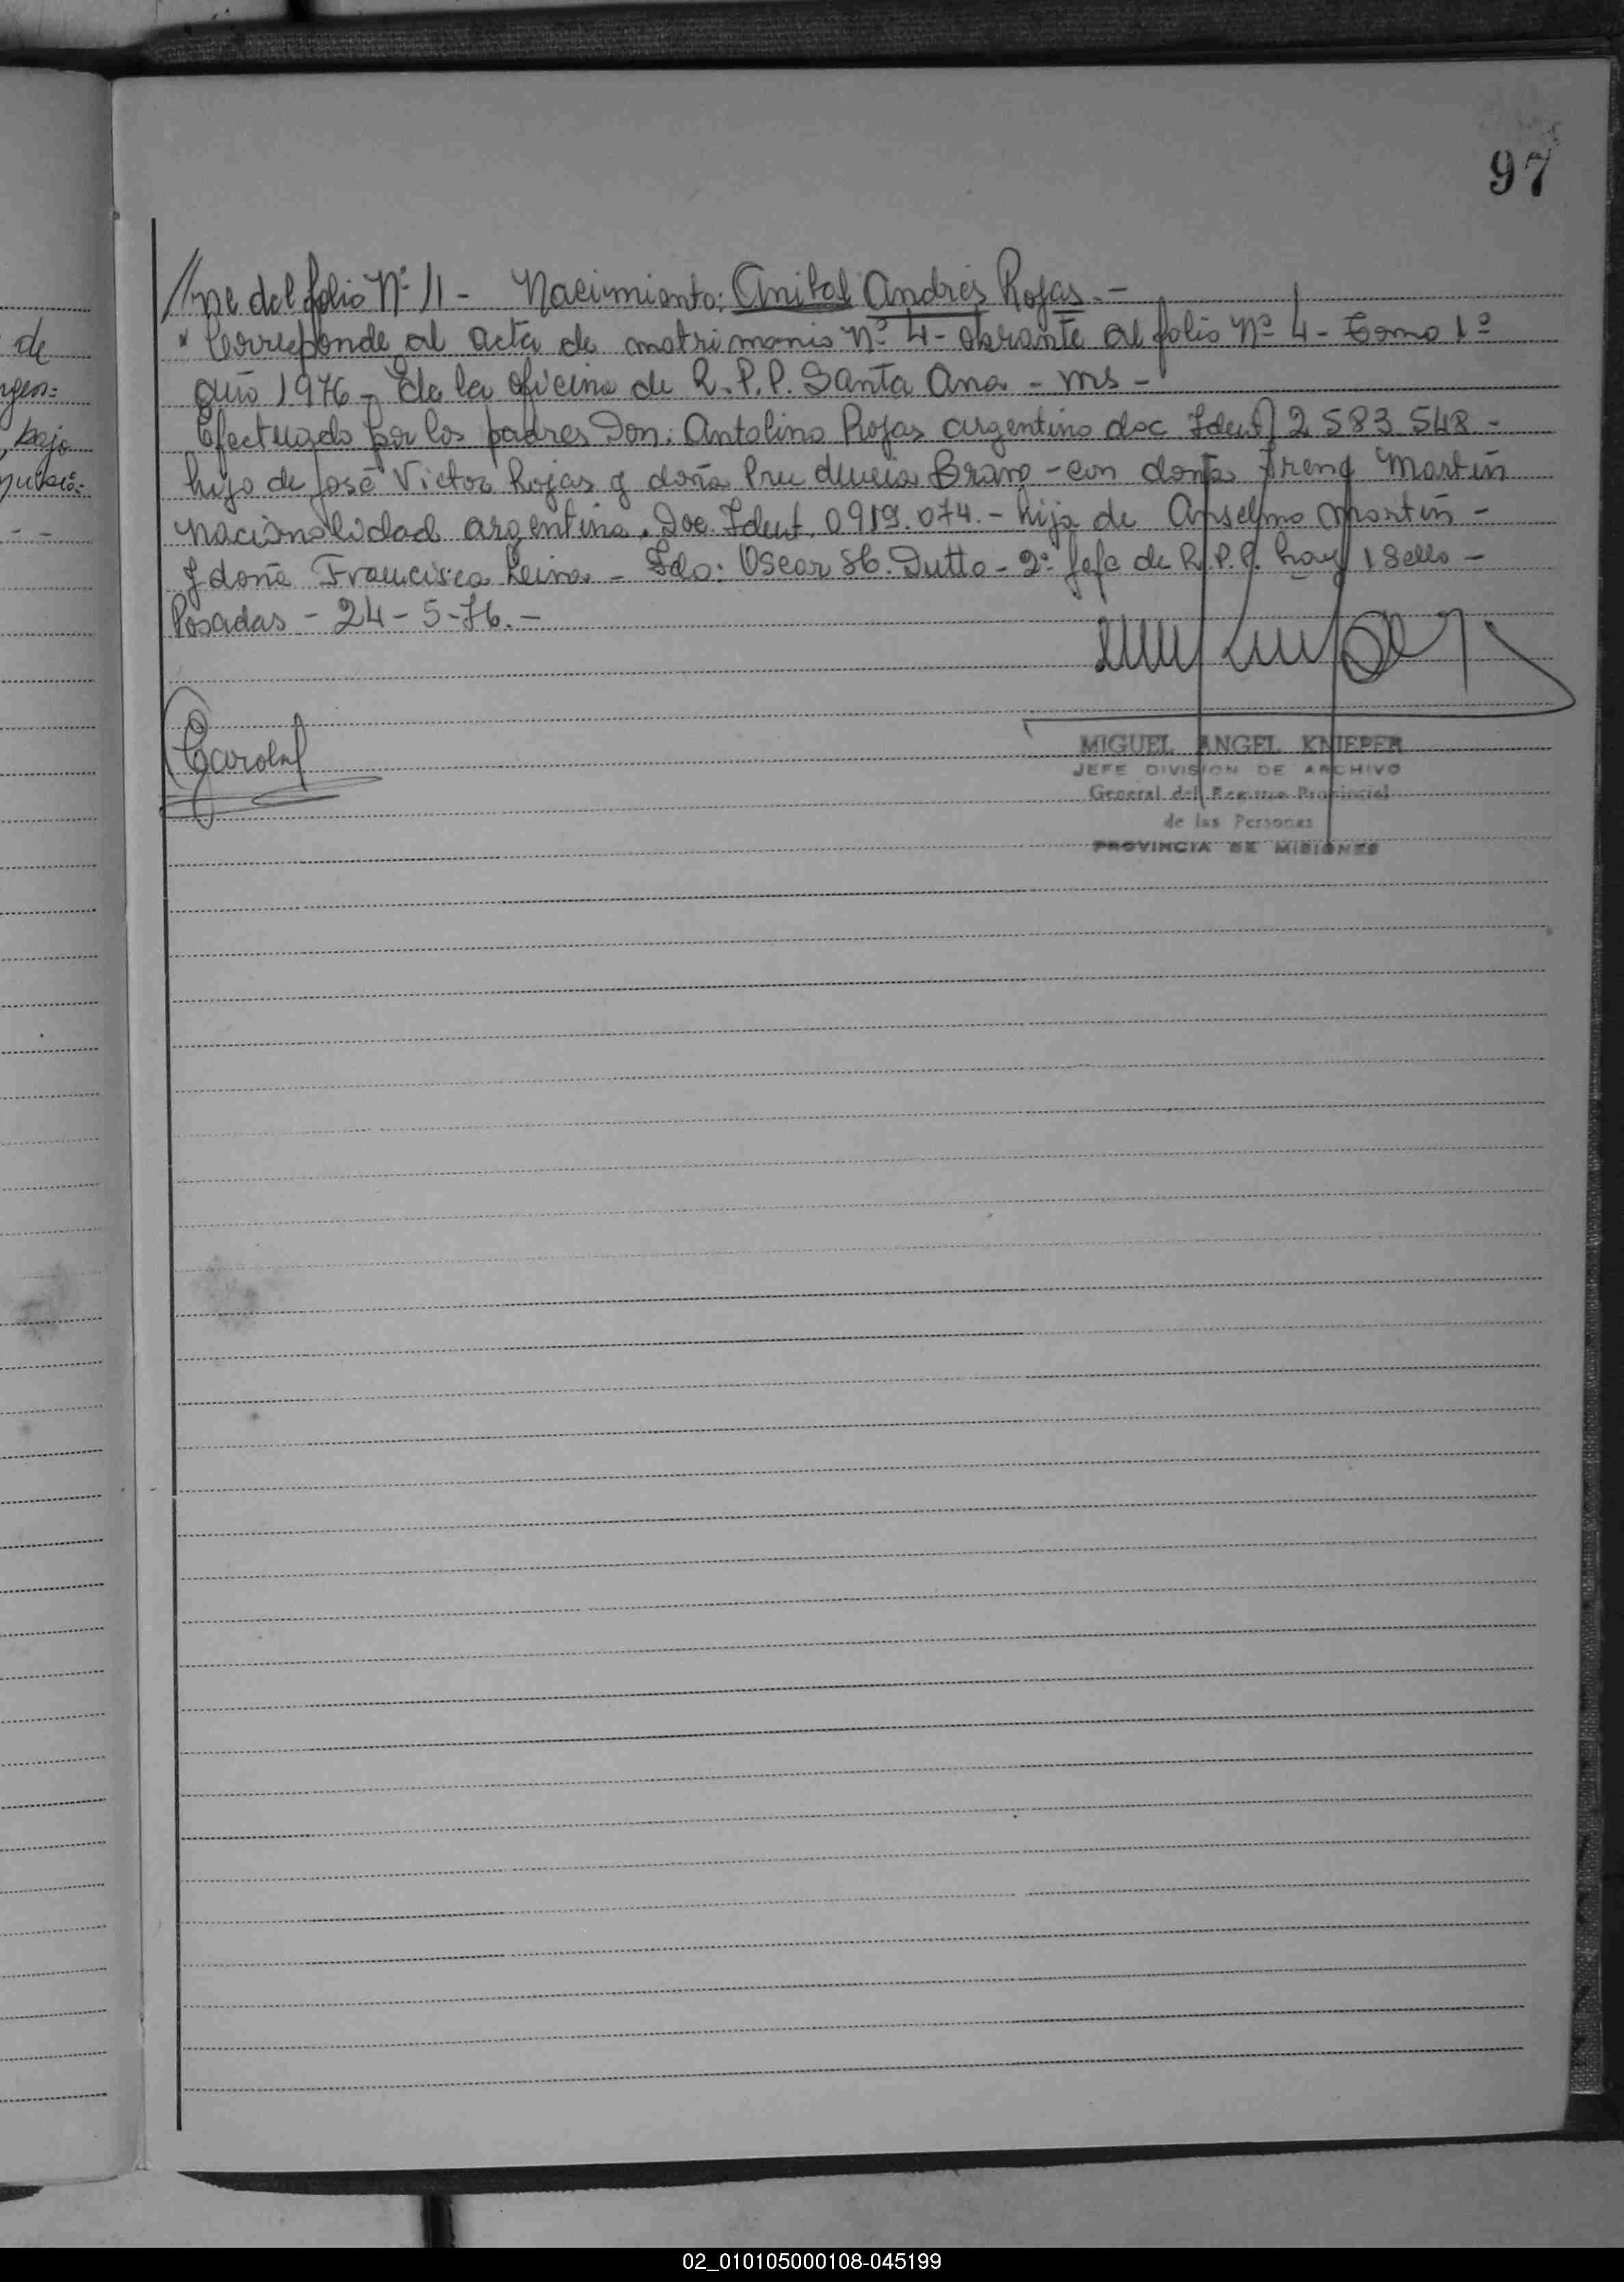 97
de
bajo
//ne del folio Nº 11 - Nacimiento: Anibal Andrés Rojas. -
" Corresponde al acta de matrimonio Nº 4 - obrante al folio Nº 4 - Tomo 1º
año 1976 - de la oficina de R.P.P. Santa Ana - Ms -
Efectuado por los padres Don: Antolino Rojas argentino doc Ident 2 583 548 -
hijo de José Victor Rojas y doña Prudencia Bravo - con doña Irene Martin
nacionalidad argentina. Doc. Ident. 0919.074. - hija de Anselmo Martin -
y doña Francisca Leiva - Fdo: Oscar H. Dutto - 2º Jefe de R.P.P. hay 1 Sello -
Posadas - 24 - 5 - 76. -
MIGUEL ANGEL KNIEPER
JEFE DIVISION DE ARCHIVO
General del Registro Provincial
de las Personas
PROVINCIA DE MISIONES
02_010105000108-045199